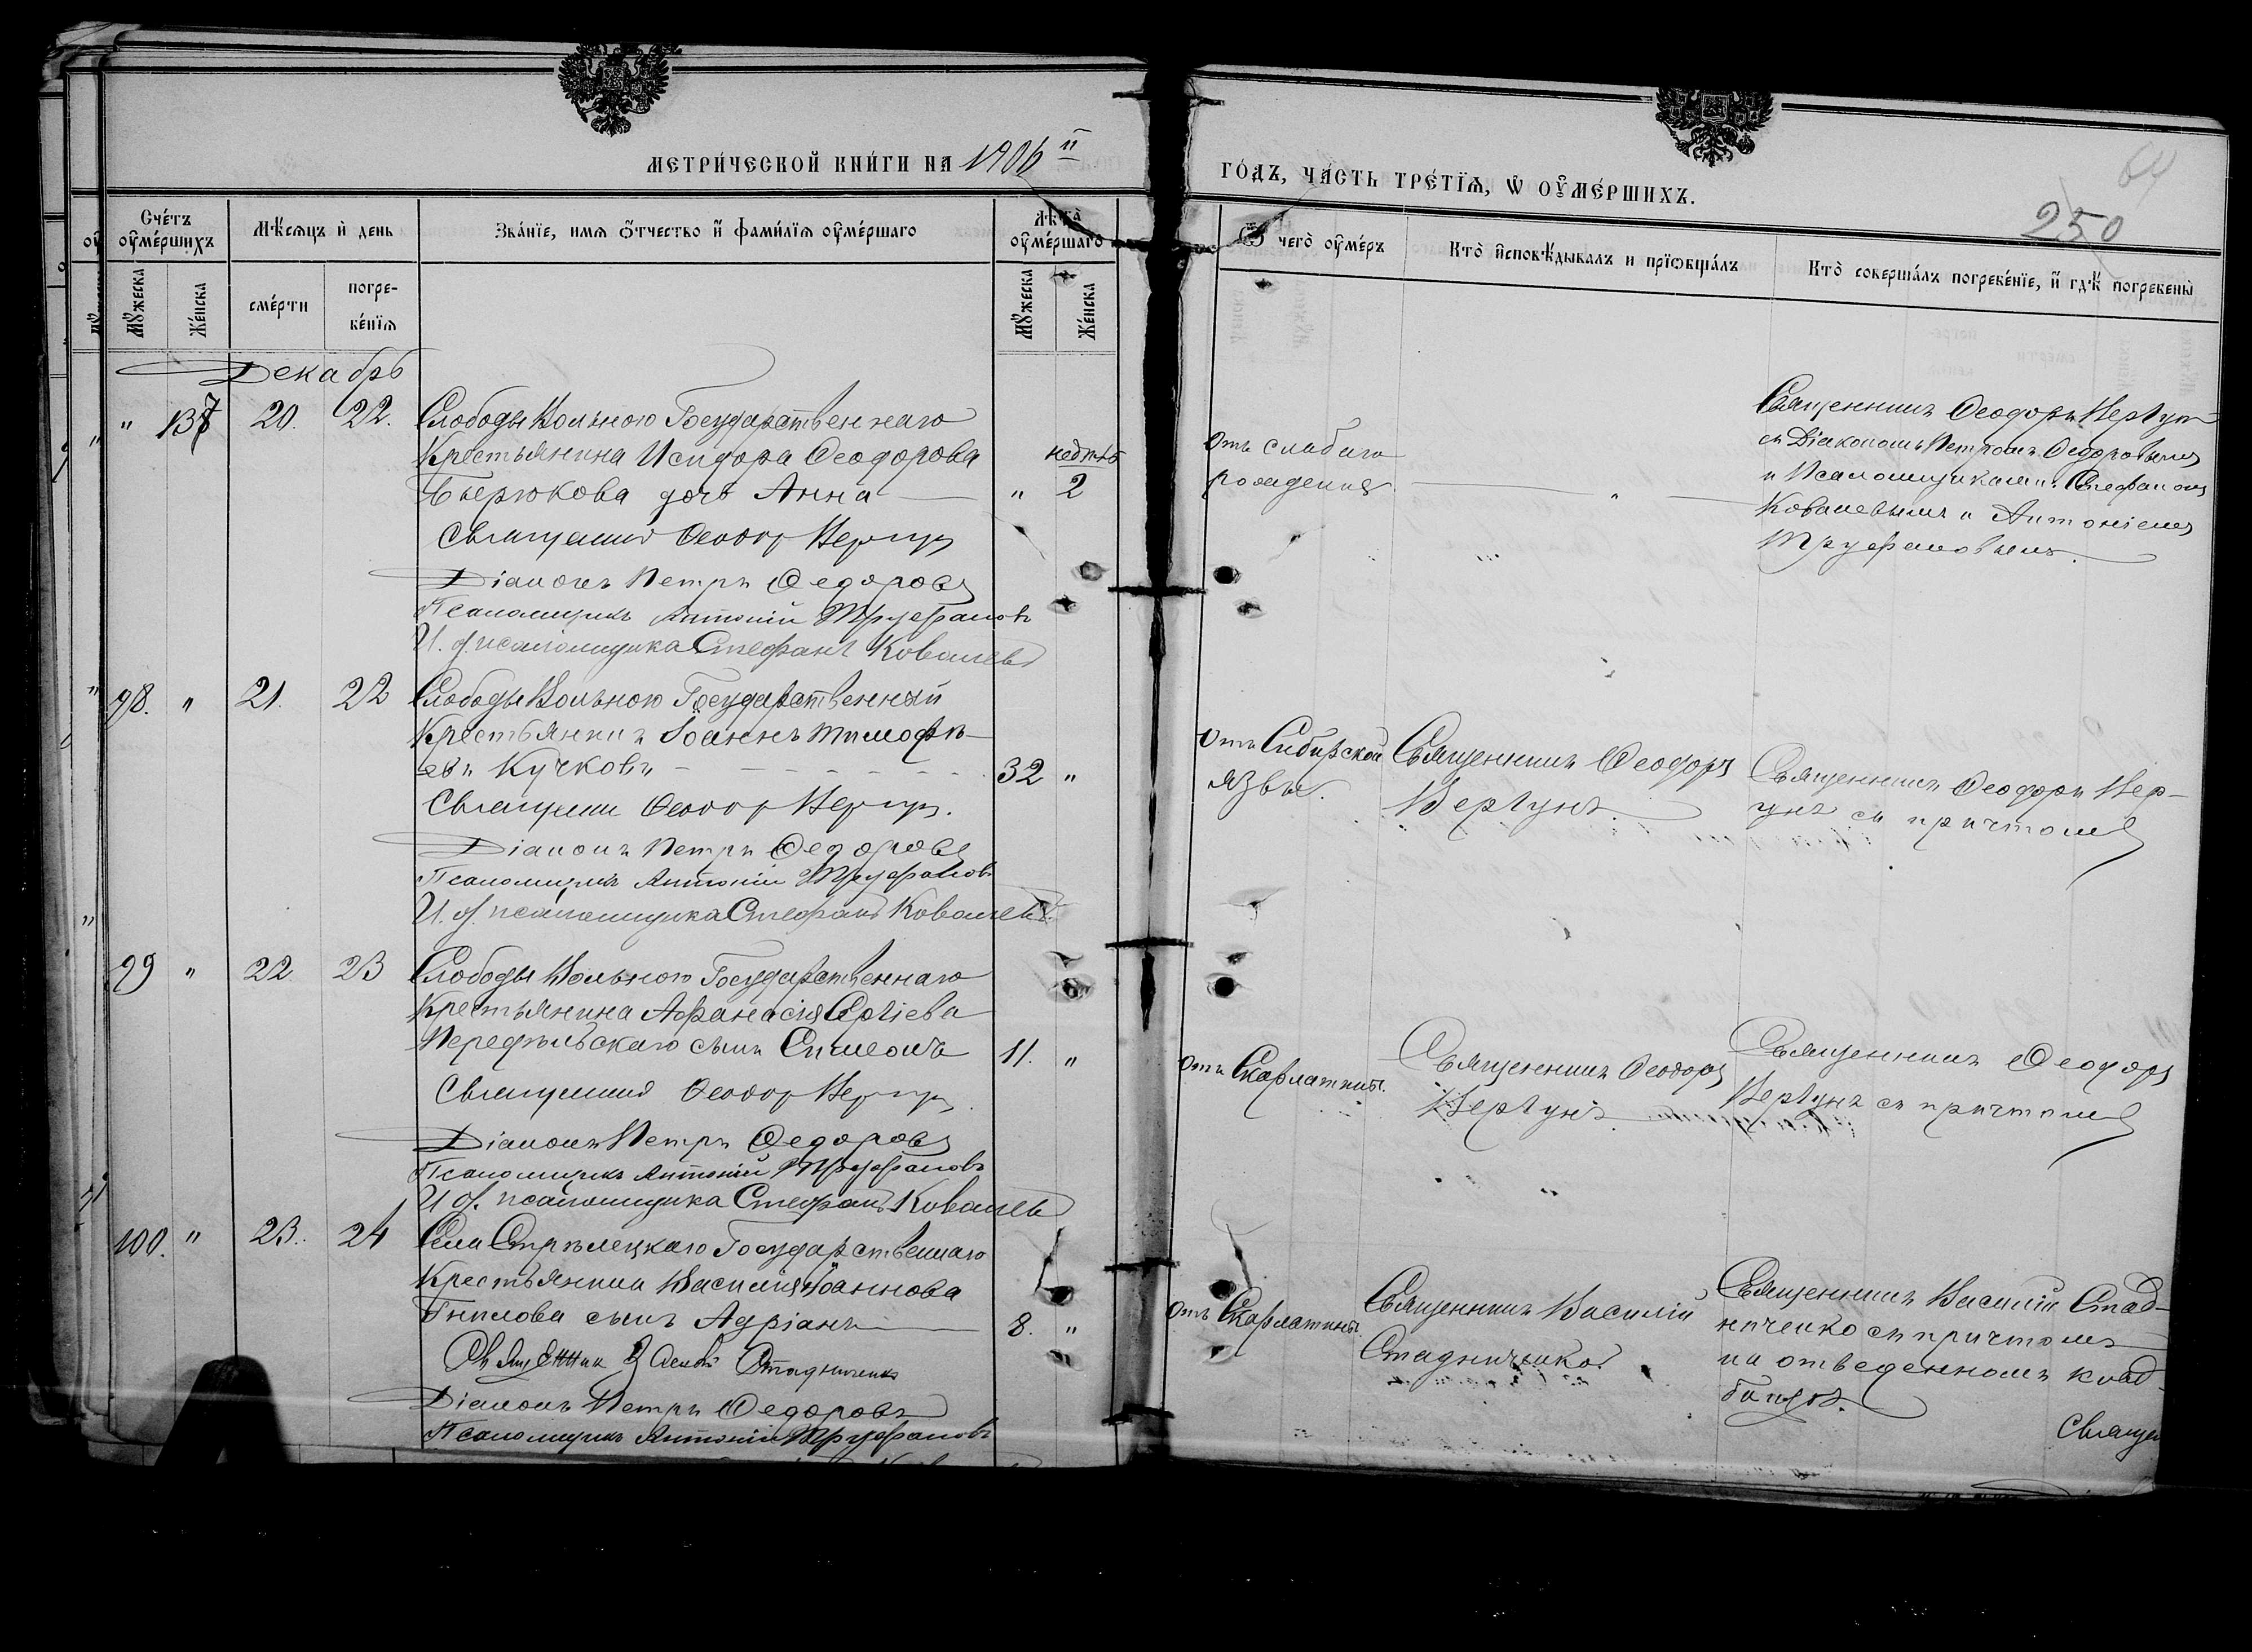 МЕТРИ́ЧЕСКОЙ КНИ́ГИ НА 1906 й
ГО́ДЪ, ЧА́СТЬ ТРЕ́ТЇѦ, Ѡ҆ ОУ҆МЕ́РШИХЪ.
250
Сче́тъ оу҆ме́ршихъ
Мѣ́сѧцъ и҆ день
Зва́нїе, имѧ ѻ҆́тчество и҆ фами́лїѧ оу҆ме́ршаго
Лѣ́та оу҆ме́ршаго
Ѿ чегѡ̀ оу҆ме́ръ
Кто̀ и҆сповѣ́дывалъ и прїѡбща́лъ
Кто̀ соверша́лъ погребе́нїе, и҆ гдѣ̀ погребены̀
Мꙋ́жеска
Же́нска
сме́рти
погребе́нїѧ
Мꙋ́жеска
Же́нска
Декабрь
" 137 20. 22. Слободы Вольного Государственнаго
Крестьянина Исидора Ѳеодорова
Бьерюкова дочь Анна " недѣль 2
Священникъ Ѳеодоръ Вергунъ
Діаконъ Петръ Ѳедоровъ
Псаломщикъ Антоній Труфановъ
И. д. псаломщика Стефанъ Ковалевъ
Отъ слабаго
рожденія
"
Священникъ Ѳеодоръ Вергунъ
съ Діакономъ Петромъ Ѳедоровымъ
и Псаломщиками: Стефаномъ
Ковалевымъ и Антоніемъ
Труфановымъ.
98. " 21. 22 Слободы Вольного Государственный
Крестьянинъ Іоаннъ Тимофѣ-
евъ Кучковъ 32 "
Священникъ Ѳеодоръ Вергунъ.
Діаконъ Петръ Ѳедоровъ
Псаломщикъ Антоній Труфановъ
И. д. псаломщика Стефанъ Ковалевъ.
Отъ Сибирской
язвы.
Священникъ Ѳеодоръ
Вергунъ.
Священникъ Ѳеодоръ Вер-
гунъ съ причтомъ
99 " 22 23 Слободы Вольного Государственнаго
Крестьянина Афанасія Сергіева
Передѣльскаго сынъ Симеонъ 11. "
Священникъ Ѳеодоръ Вергунъ.
Діаконъ Петръ Ѳедоровъ
Псаломщикъ Антоній Труфановъ
И. д. псаломщика Стефанъ Ковалевъ
Отъ Скарлатины.
Священникъ Ѳеодоръ
Вергунъ.
Священникъ Ѳеодоръ
Вергунъ съ причтомъ
100. " 23. 24 Села Стрѣлецкаго Государственнаго
Крестьянина Василія Іоаннова
Гнилова сынъ Адріанъ 8. "
Священник Василій Стадниченко
Діаконъ Петръ Ѳедоровъ
Псаломщикъ Антоній Труфановъ
Отъ Скарлатины.
Священникъ Василій
Стадниченко.
Священникъ Василій Стад-
ниченко съ причтомъ
на отведенномъ клад-
бищѣ.
Священ